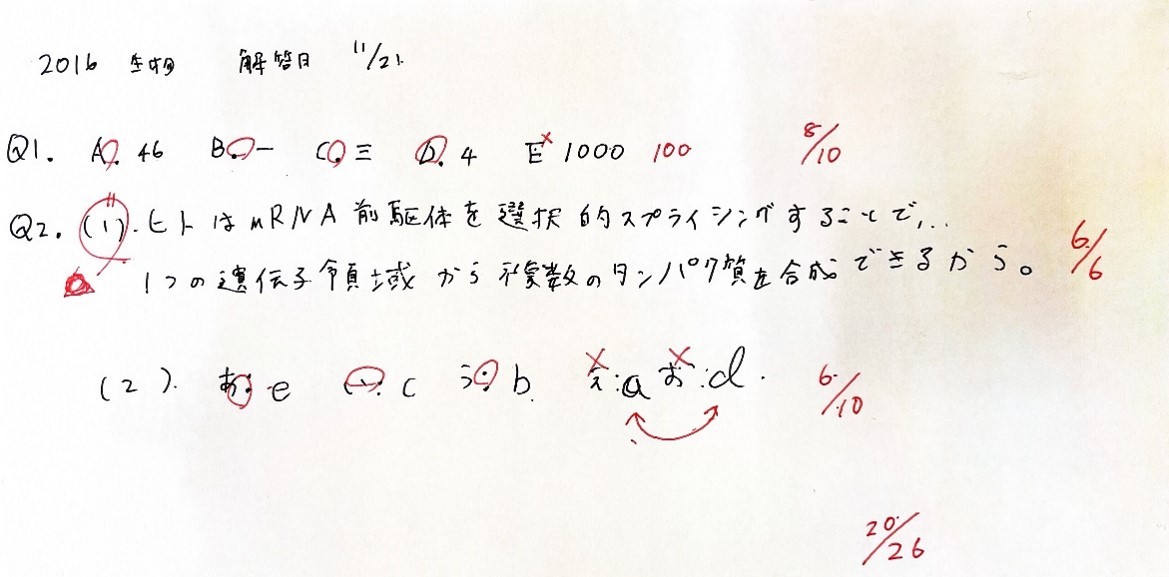 2016 生物 解答日 11/21
Q1. A. 46 B. 一 C. 三 D. 4 E 1000 100 8/10
Q2. (1). ヒトはmRNA前駆体を選択的スプライシングすることで、
1つの遺伝子領域から複数のタンパク質を合成できるから。 6/6
(2). あ: e い: c う: b え: a お: d. 6/10
20/26